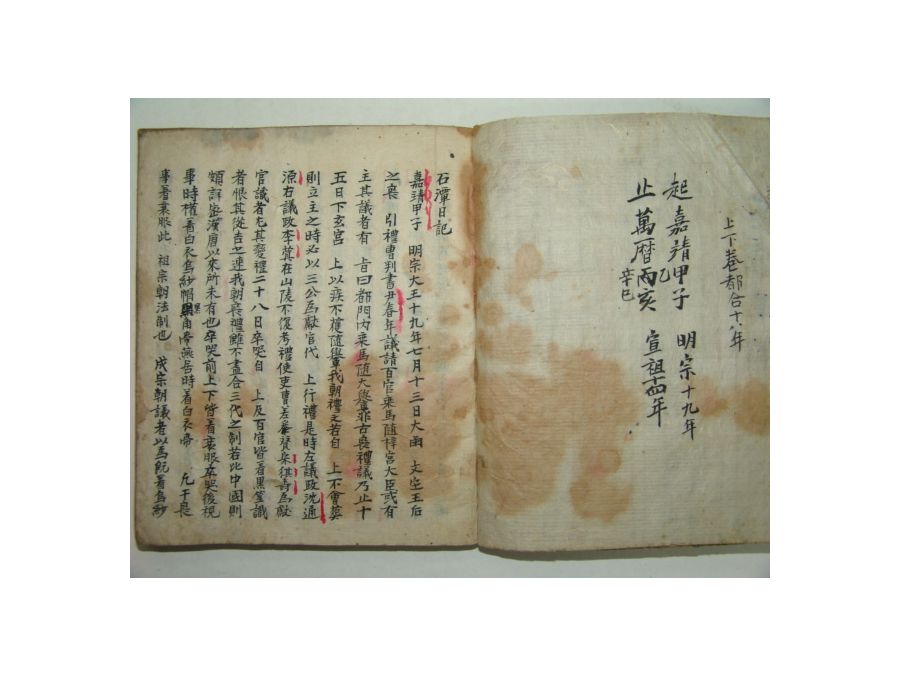 上下巻都合十八年
起嘉靖甲子 明宗十九年
止萬曆丙亥 宣祖十四年
乙
辛巳
石潭日記
嘉靖甲子 明宗大王十九年七月十三日大雨 文定王后
之喪 引禮曹判書尹春年議請百官乘馬随梓宮大臣或有
主其議者有 旨曰都門内乘馬随大轝甚非古喪禮議乃止十
五日下玄宮 上以疾不獲随轝我朝禮文若自 上不會葬
則立主之時必以三公為獻官代 上行禮是時左議政沈通
源右議政李蓂在山陵不復考禮使吏曹差 賛 為獻
官識者尤其變禮二十八日卒哭自 上及百官皆着黒笠識
者恨其従吉之速我朝喪禮雖不盡合三代之制若比中國則
頗詳密漢唐以來所未有也卒哭前上下皆着衰服卒哭後視
事時權着白衣烏紗帽黒角帶燕居時着白衣帶 凡干是
事着衰服此 祖宗朝法制也 成宗朝議者以為既着烏紗